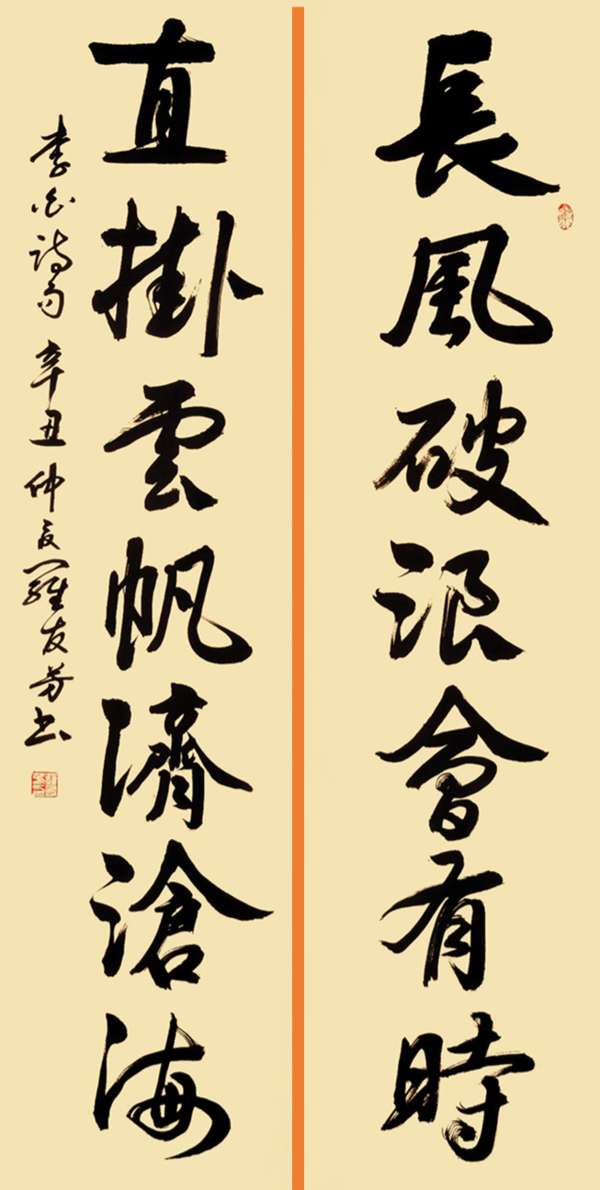 長風破浪會有時
直掛雲帆濟滄海
李白詩句 辛丑仲夏羅友芳书